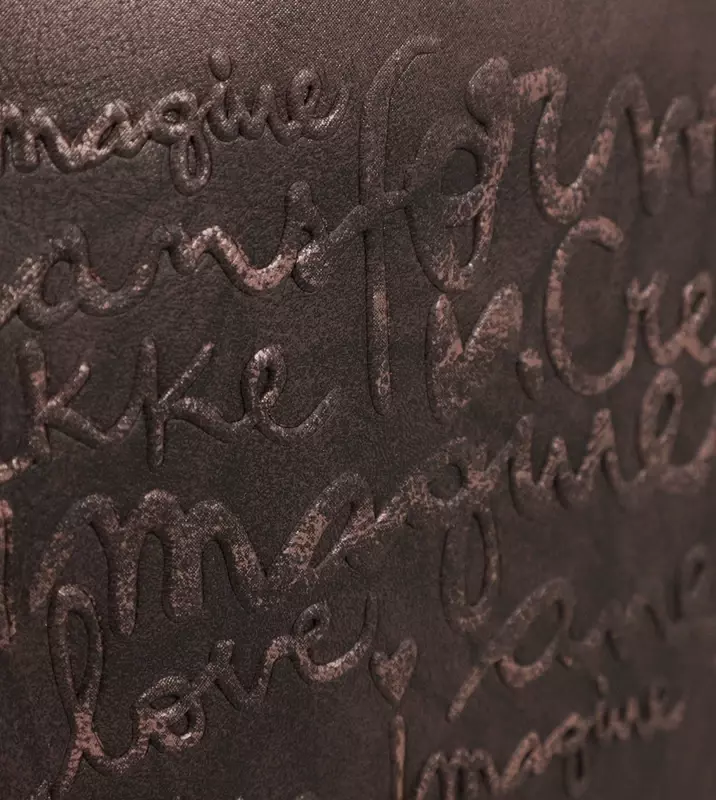 magine
ansform
kke Cre
magine
love ♥
Imagine